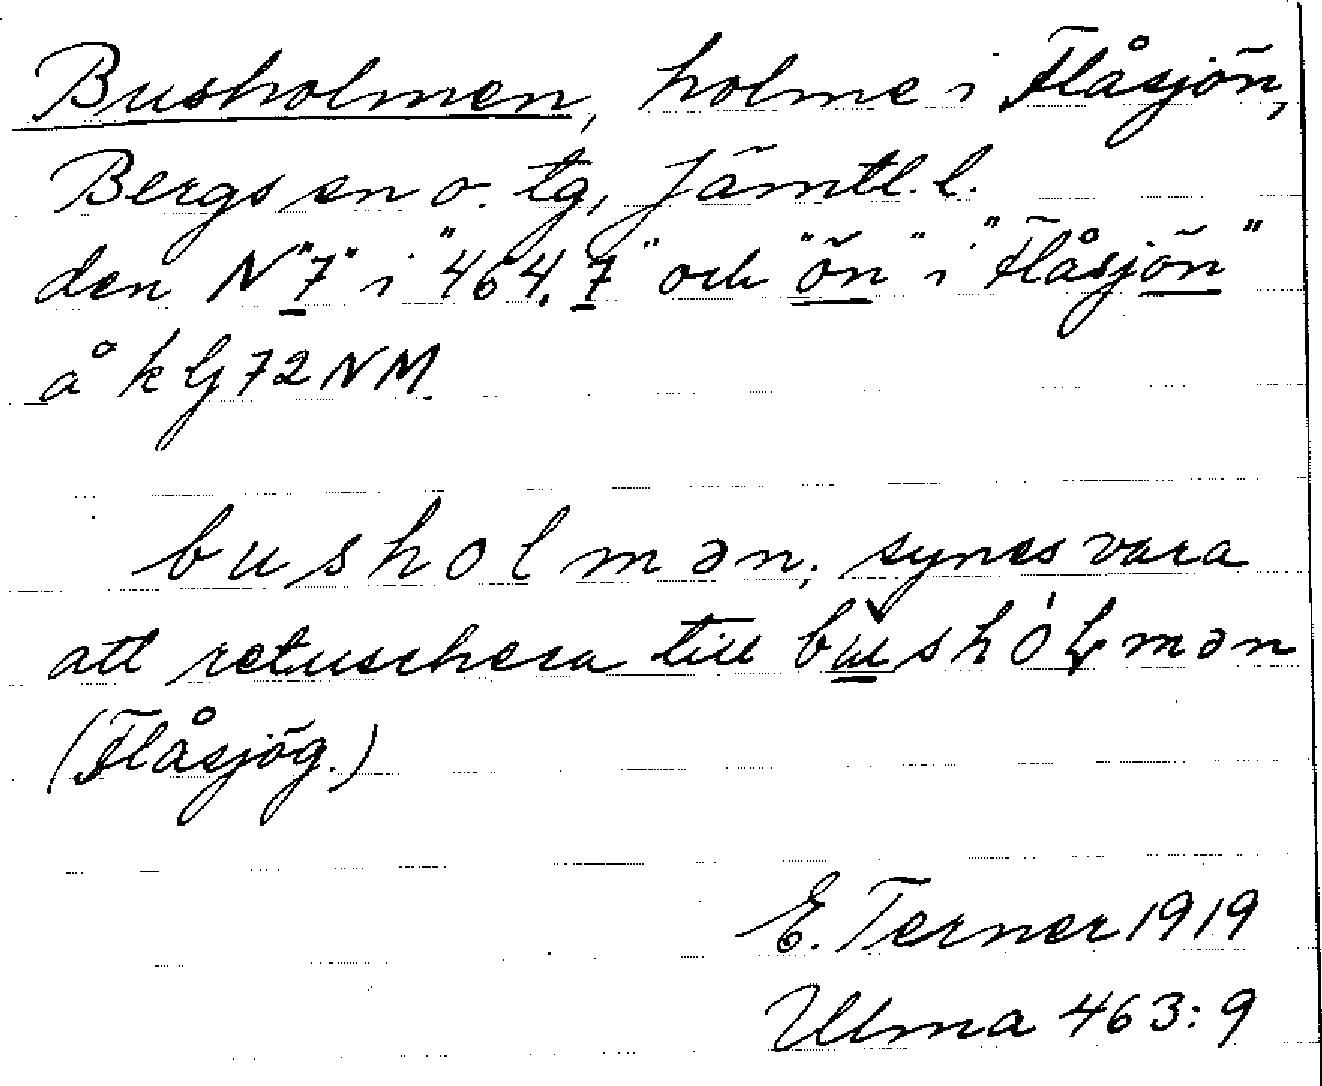 Busholmen, holme i Flåsjön,
Bergs sn o. tg, Jämtl. l.
den N "7" i "464.7" och "ön" i "Flåsjön"
å k bj 72 NM.
busholmən; synes vara
att retuschera till
(Flåsjög.)
E. Terner 1919
Ulma 463:9